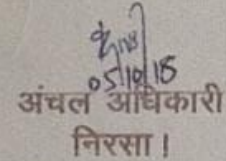 05/10/18
अंचल अधिकारी
निरसा।